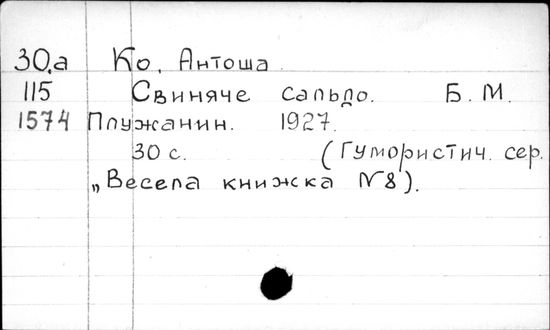 30.а Ко, Антоша.
115 Свиняче сальдо. Б. М.
1574 Плужанин. 1927.
30 с. (Гумористич. сер.
„Весела книжка №8).